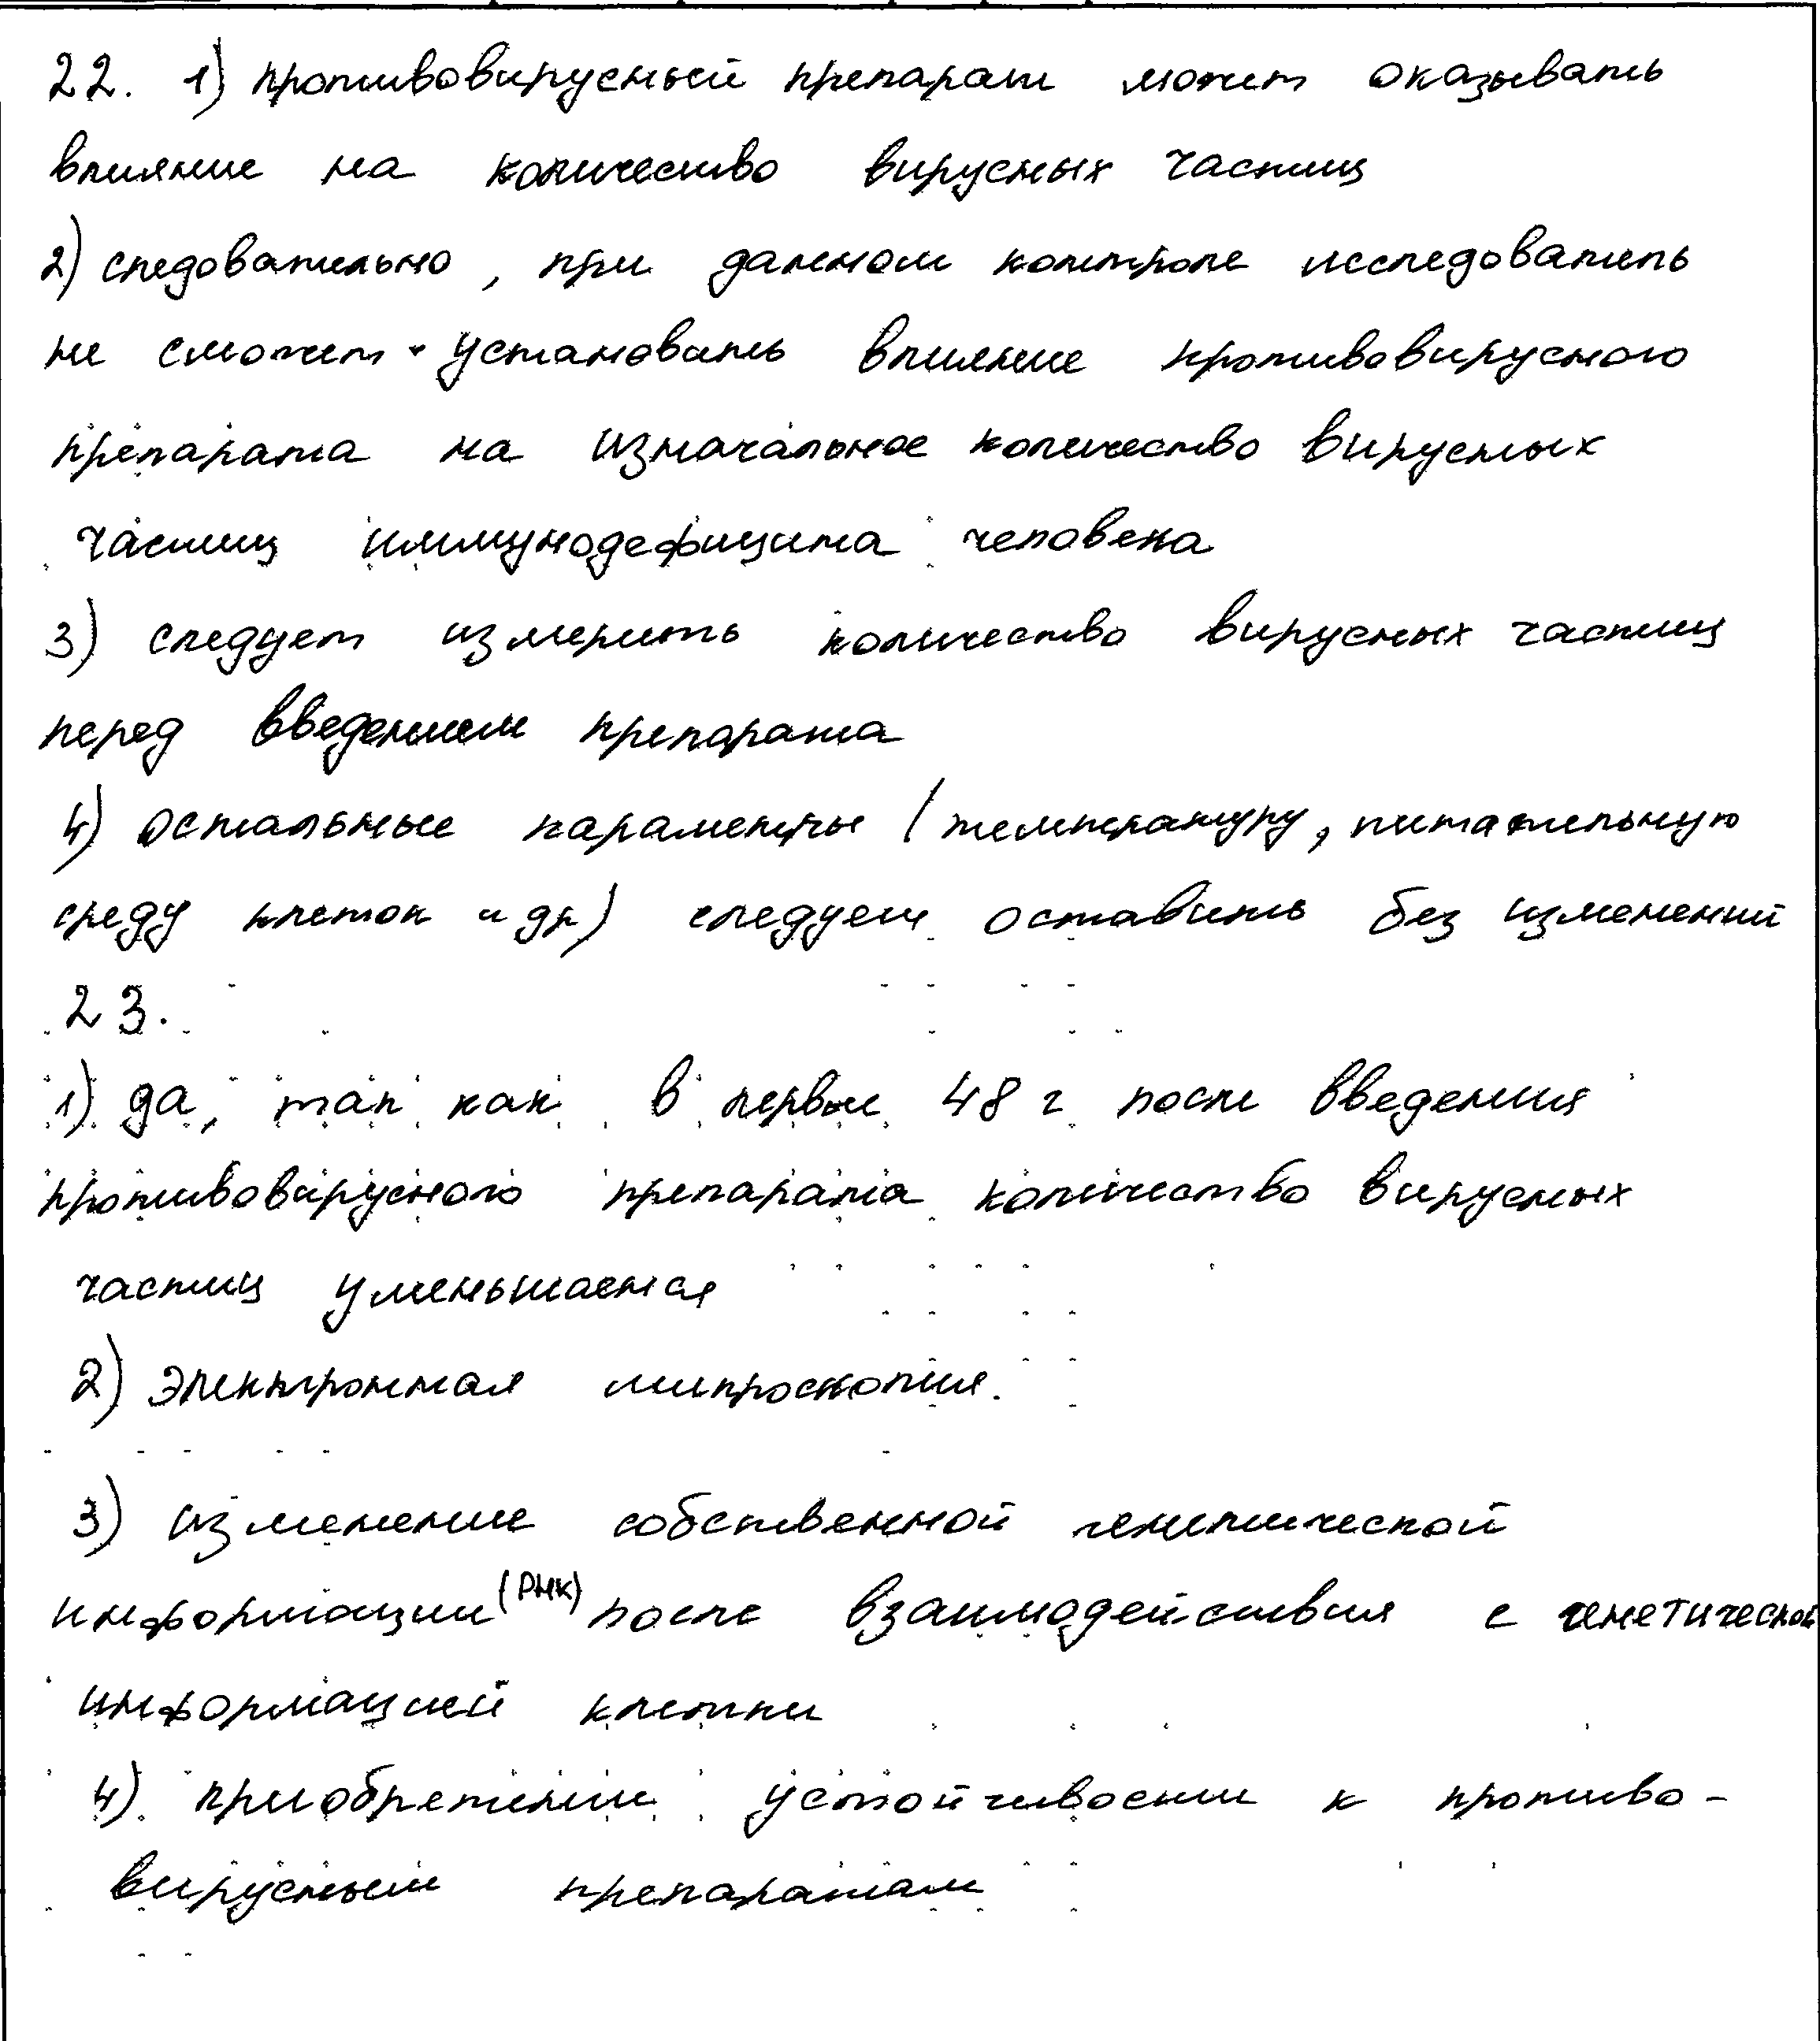 22. 1) противовирусный препарат может оказывать
влияние на количество вирусных частиц
2) следовательно, при данном контроле исследователь
не сможет установить влияние противовирусного
препарата на изначальное количество вирусных
частиц иммунодефицита человека
3) следует измерить количество вирусных частиц
перед введением препарата
4) остальные параметры (температуру, питательную
среду клеток и др) следует оставить без изменений
23.
1) да, так как в первые 48 г после введения
противовирусного препарата количество вирусных
частиц уменьшается
2) электронная микроскопия.
3) изменение собственной генетической
информации (РНК) после взаимодействия с генетической
информацией клетки
4) приобретении устойчивости к противо-
вирусным препаратам